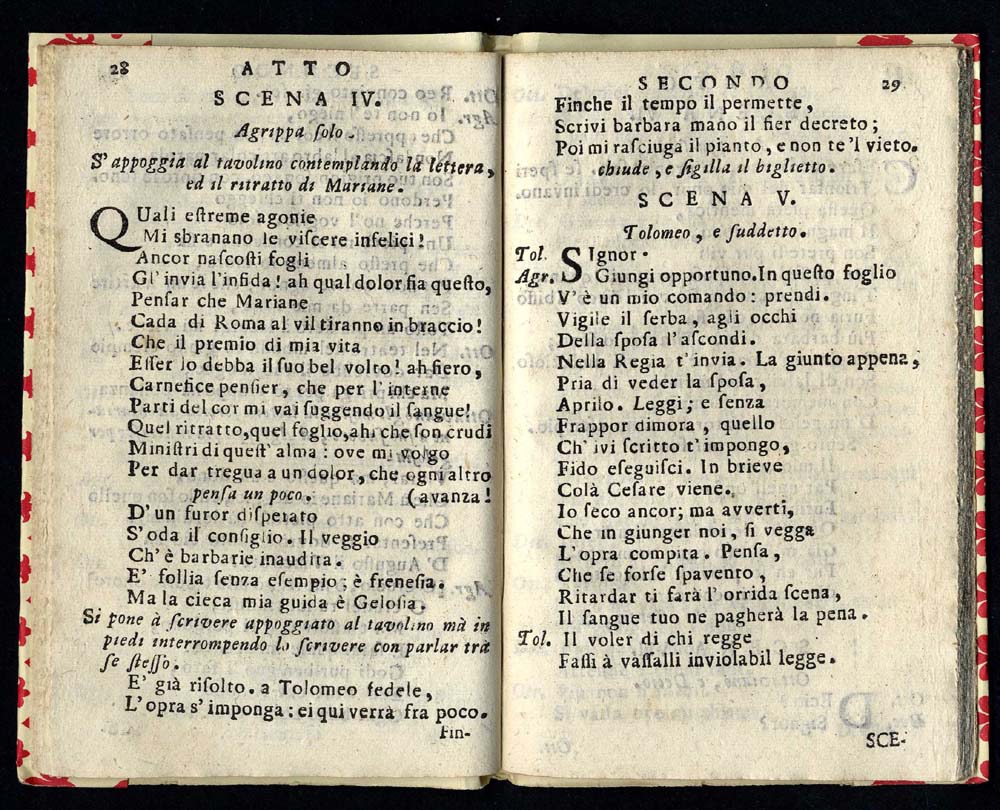 28 ATTO
SCENA IV.
Agrippa ſolo.
S'appoggia al tavolino contemplando la lettera,
ed il ritratto di Mariane.
QUali eſtreme agonie
Mi sbranano le viſcere infelici!
Ancor naſcoſti fogli
Gl' invia l'infida! ah qual dolor ſia queſto,
Penſar che Mariane
Cada di Roma al vil tiranno in braccio!
Che il premio di mia vita
Eſſer lo debba il ſuo bel volto! ah fiero,
Carnefice penſier, che per l' interne
Parti del cor mi vai ſuggendo il ſangue!
Quel ritratto, quel foglio, ahi che ſon crudi
Miniſtri di queſt' alma: ove mi volgo
Per dar tregua a un dolor, che ogni altro
penſa un poco. (avanza!
D' un furor diſperato
S'oda il conſiglio. Il veggio
Ch' è barbarie inaudita.
E' follia ſenza eſempio; è freneſia.
Ma la cieca mia guida è Geloſia.
Si pone à ſcrivere appoggiato al tavolino mà in
piedi interrompendo lo ſcrivere con parlar trà
ſe ſteſſo.
E' già riſolto. a Tolomeo fedele,
L'opra s' imponga: ei qui verrà fra poco.
Fin-
SECONDO 29
Finche il tempo il permette,
Scrivi barbara mano il fier decreto;
Poi mi raſciuga il pianto, e non te'l vieto.
chiude, e ſigilla il biglietto.
SCENA V.
Tolomeo, e ſuddetto.
Tol. SIgnor.
Agr. Giungi opportuno. In queſto foglio
V' è un mio comando: prendi.
Vigile il ſerba, agli occhi
Della ſpoſa l'aſcondi.
Nella Regia t' invia. La giunto appena,
Pria di veder la ſpoſa,
Aprilo. Leggi; e ſenza
Frappor dimora, quello
Ch' ivi ſcritto t' impongo,
Fido eſeguiſci. In brieve
Colà Ceſare viene.
Io ſeco ancor; ma avverti,
Che in giunger noi, ſi vegga
L'opra compita. Penſa,
Che ſe forſe ſpavento,
Ritardar ti farà l' orrida ſcena,
Il ſangue tuo ne pagherà la pena.
Tol. Il voler di chi regge
Faſſi à vaſſalli inviolabil legge.
SCE-